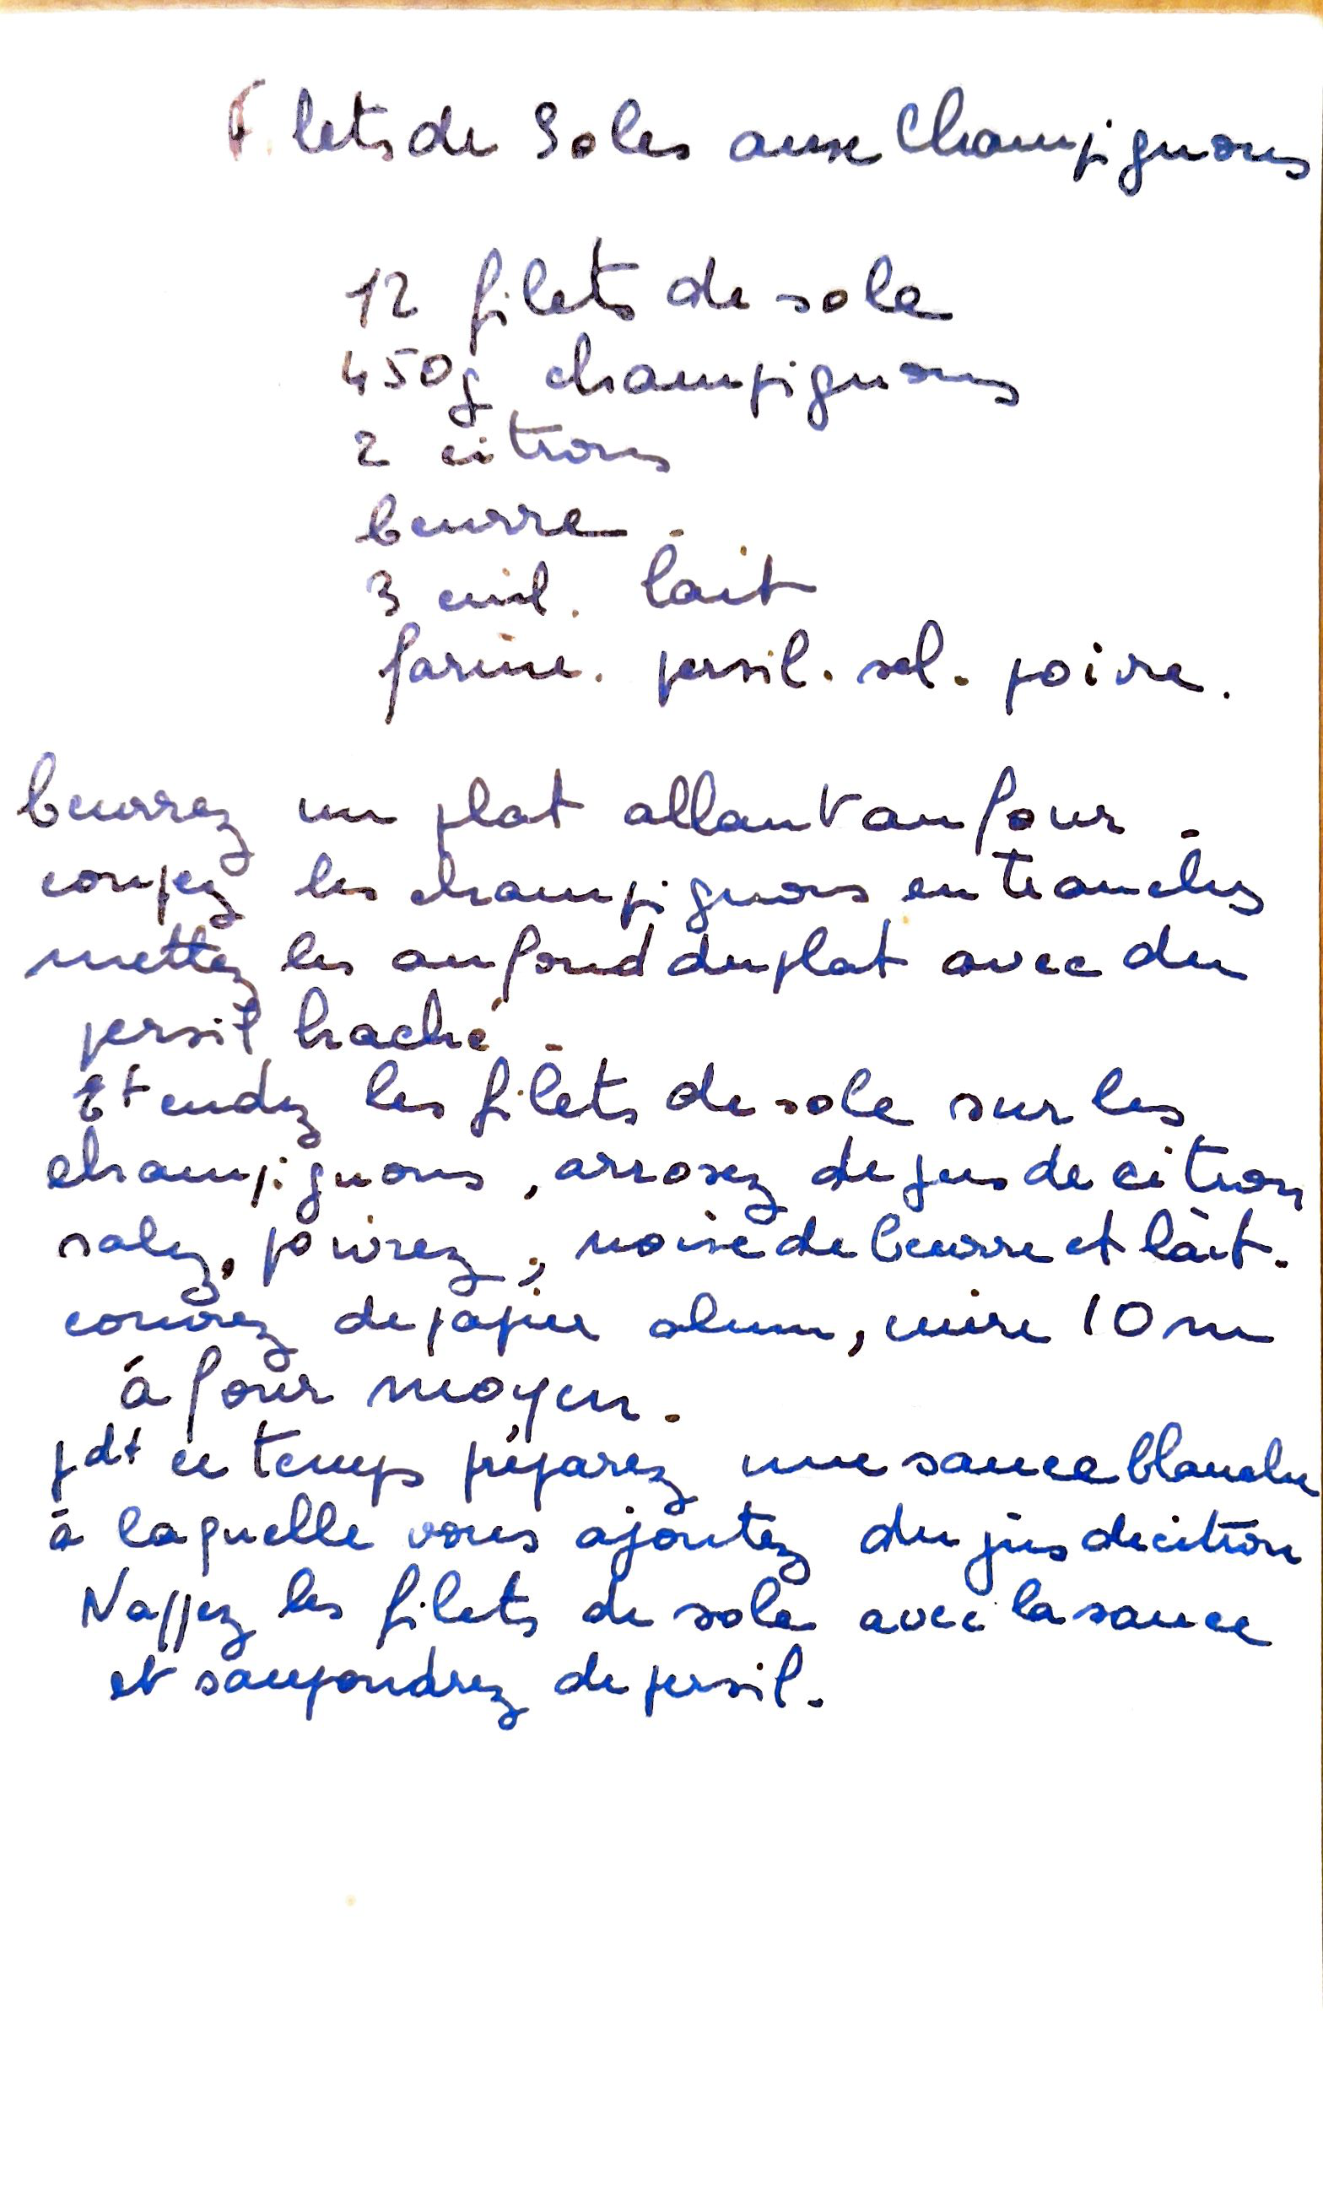 Filets de Soles aux Champignons
12 filets de sole
450g champignons
2 citrons
beurre.
3 cuil. lait
farine. persil. sel. poivre.
beurrez un plat allant au four.
coupez les champignons en tranches
mettez les au fond du plat avec du
persil haché.
Etendez les filets de sole sur les
champignons, arrosez de jus de citron
salez, poivrez, noix de beurre et lait.
couvrez de papier alum, cuire 10 m
à four moyen.
pdt ce temps préparez une sauce blanche
à laquelle vous ajoutez du jus de citron
Nappez les filets de sole avec la sauce
et saupoudrez de persil.